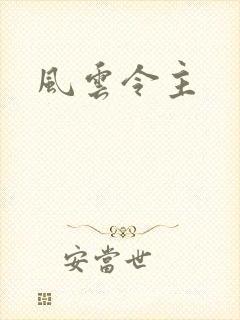 風雲令主
安當世